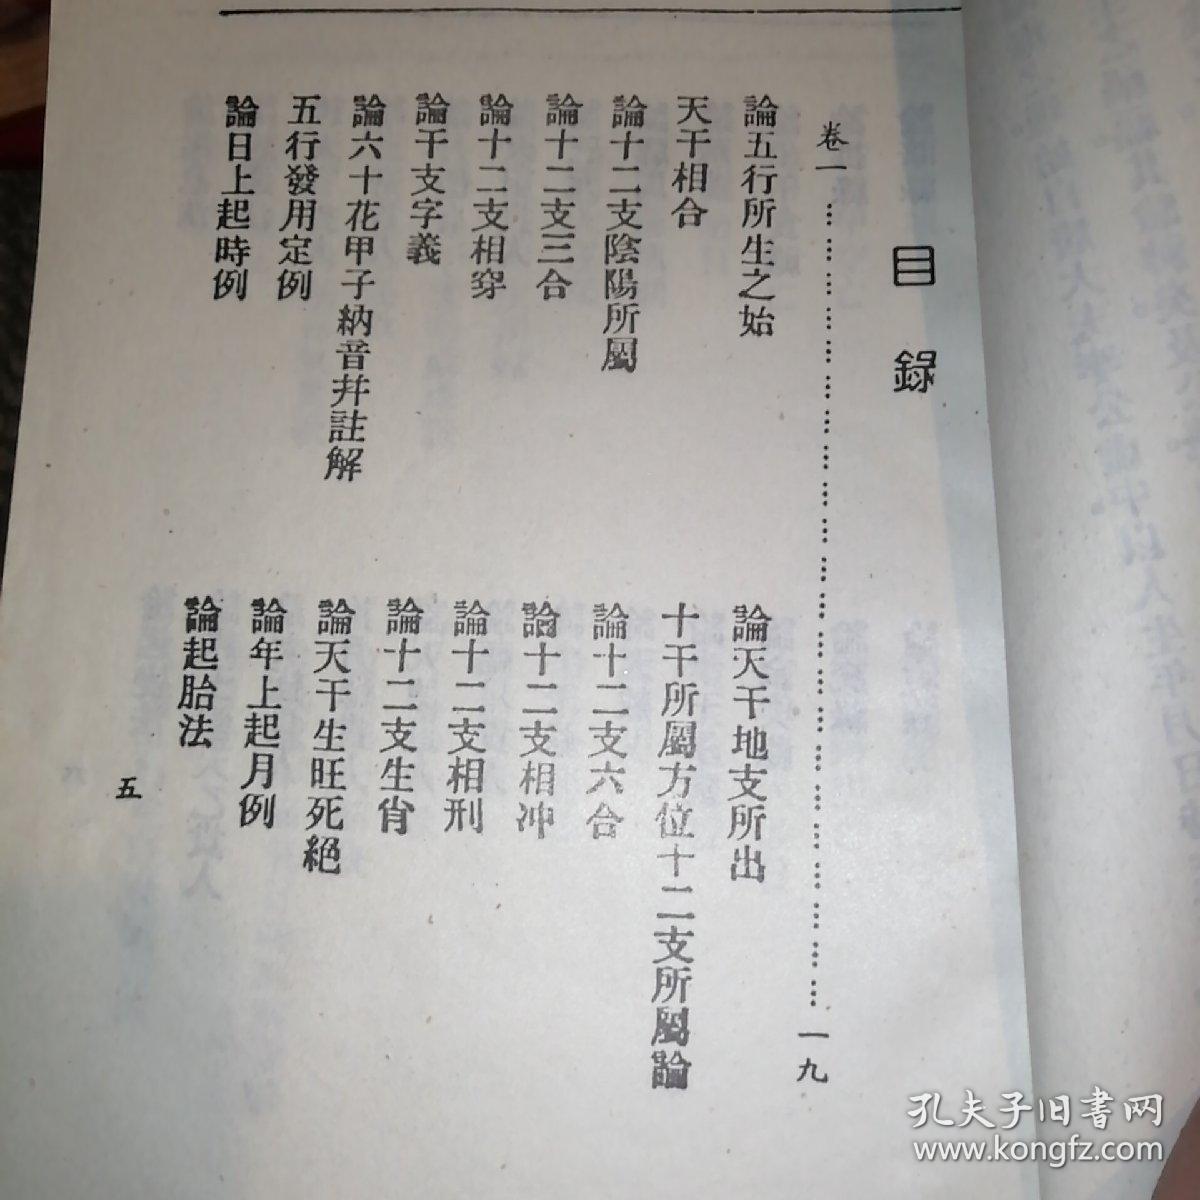 目錄
卷一 …………………………………………………… 一九
論五行所生之始
論天干地支所出
天干相合
十干所屬方位十二支所屬論
論十二支陰陽所屬
論十二支六合
論十二支三合
論十二支相冲
論十二支相穿
論十二支相刑
論干支字義
論十二支生肖
論六十花甲子納音幷註解
論天干生旺死絕
五行發用定例
論年上起月例
論日上起時例
論起胎法
五
孔夫子旧书网
www.kongfz.com